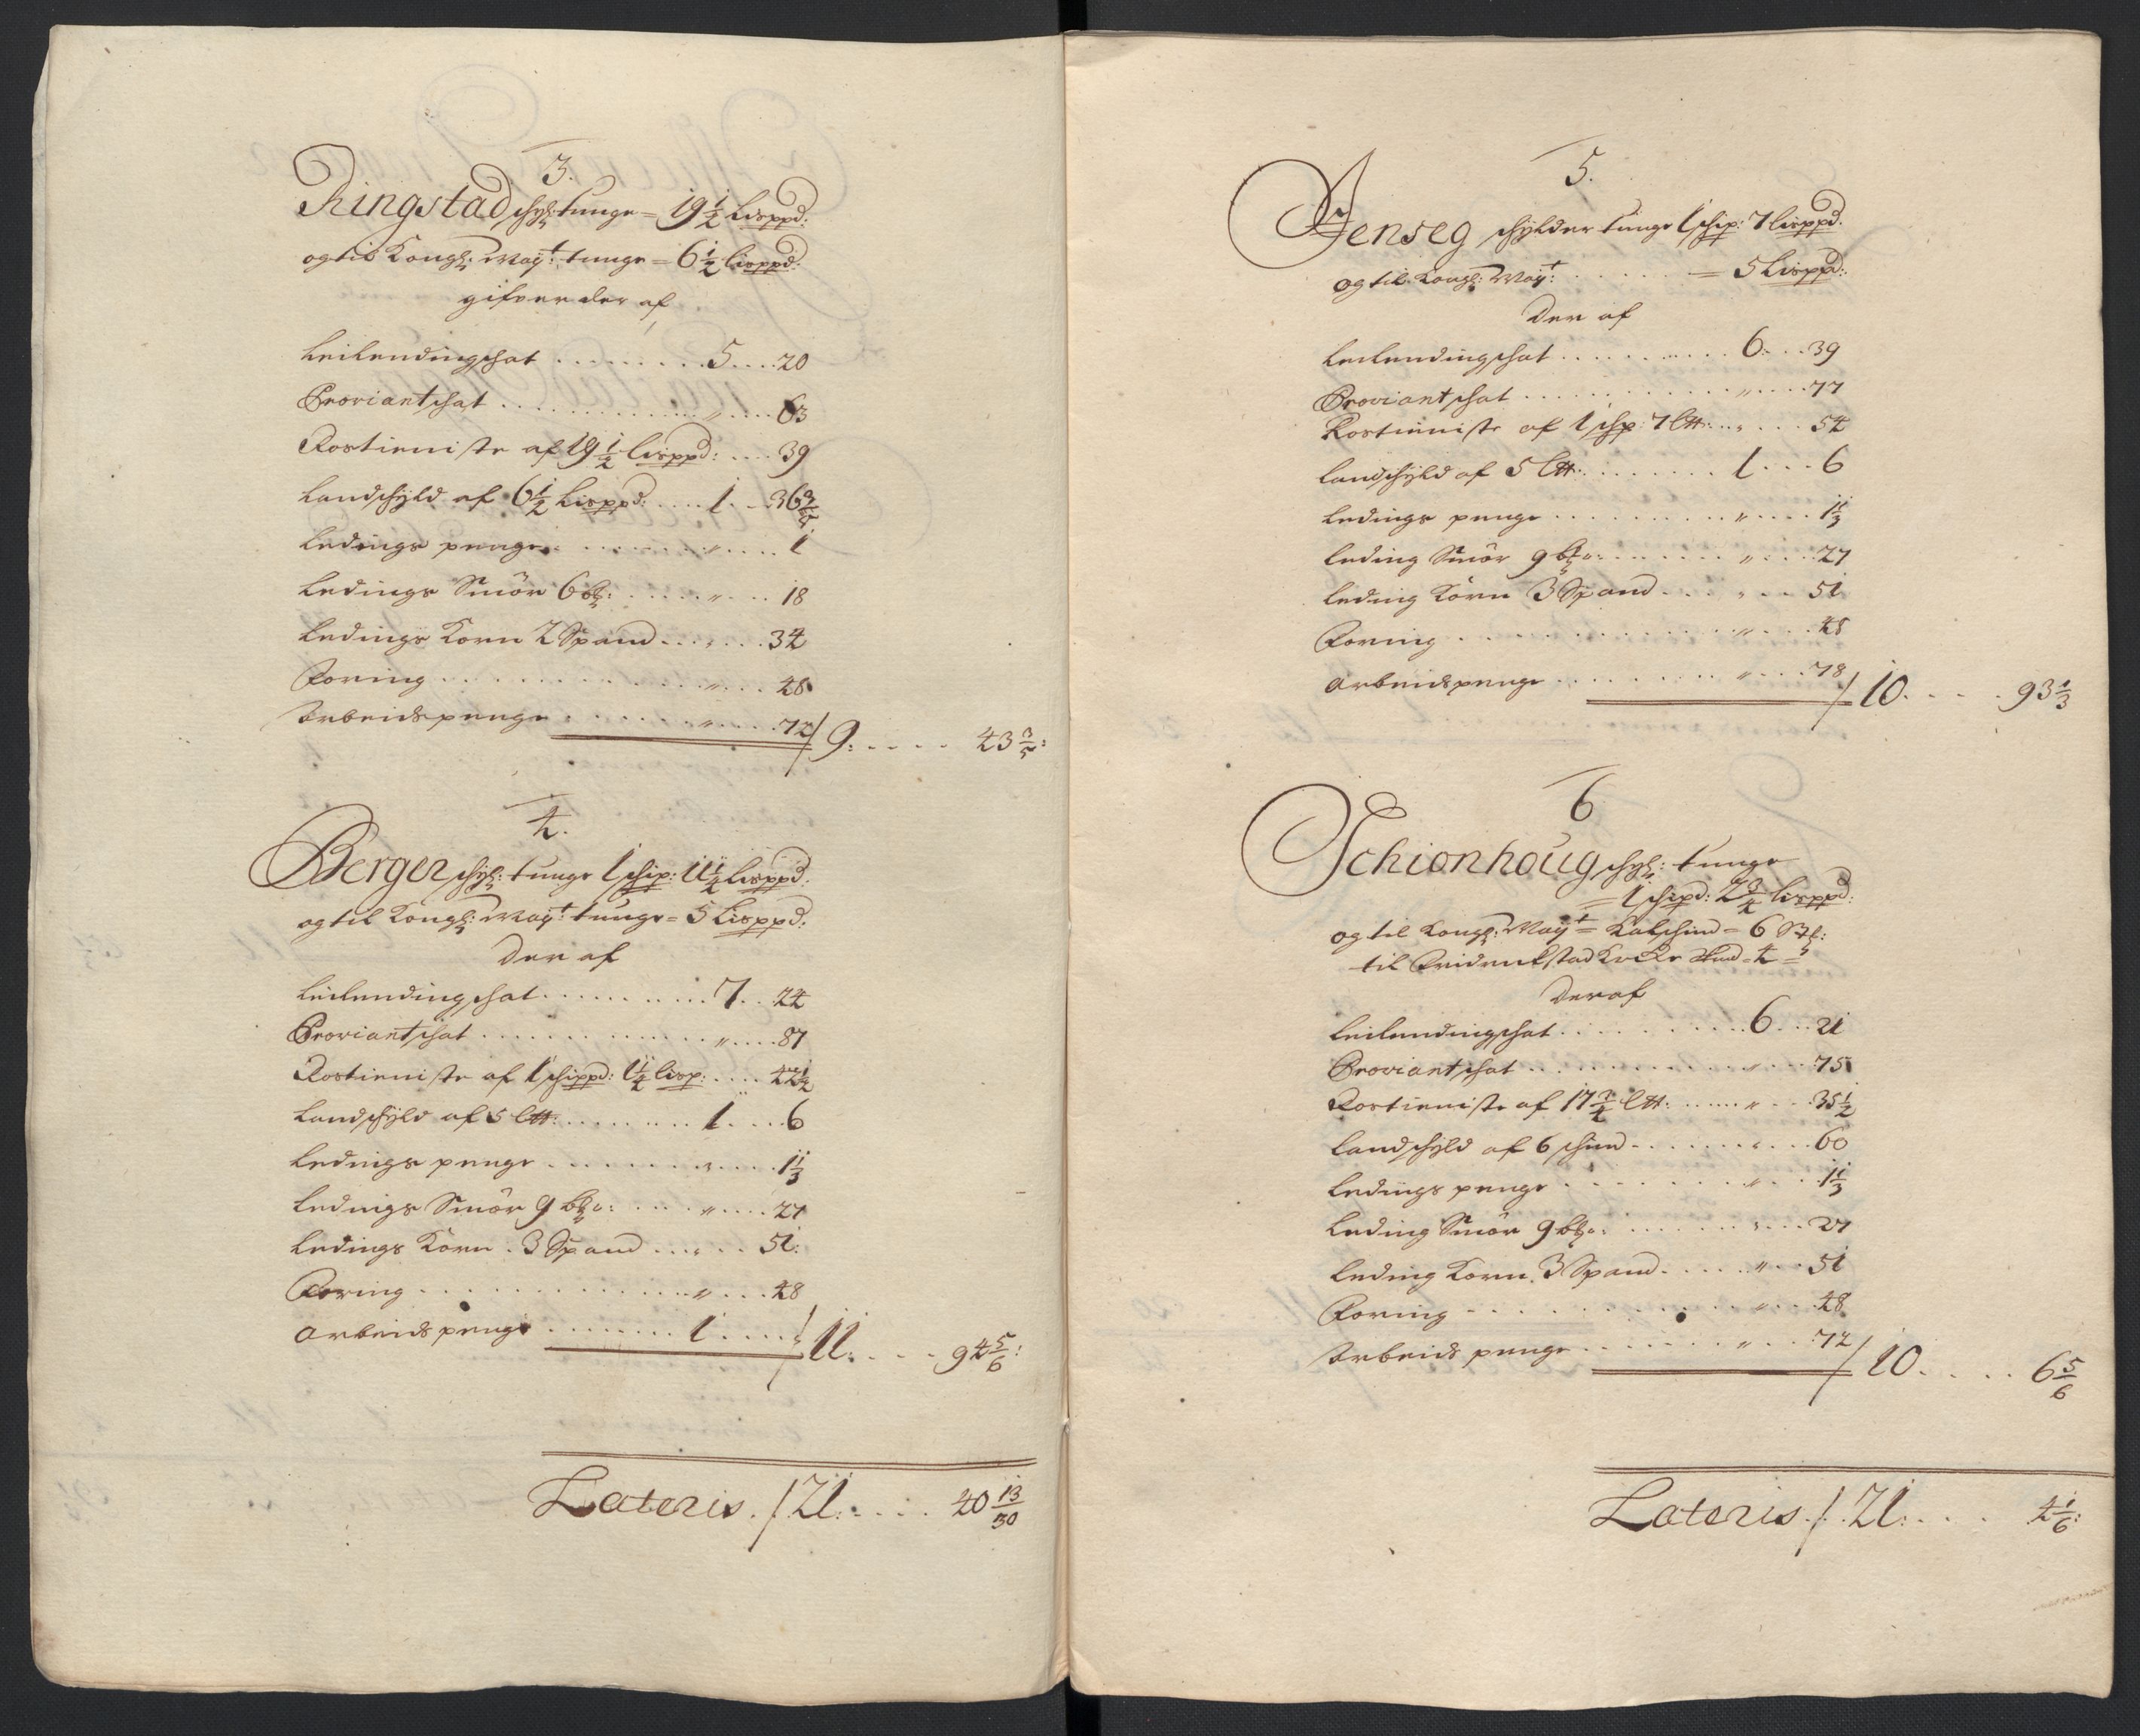 3.
Ringstad schyl: tunge = 19 1/2 Lisppd:
og til Kongl: Mayt: tunge = 6 1/2 lisppd:
gifver der af
Leilendingschat . . . . . . . . 5 . . . . 20
Proviantschat . . . . . . . . . . . . " . . . . 63
Rostieniste af 19 1/2 Lisppd: . . . . 39
Landschyld af 6 1/2 Lisppd: . . . . 1 . . . 36 3/5
Ledings penge . . . . . . . . " . . . . 1
Ledings Smör 6 bl: . . . . . . " . . . . 18
Ledings Korn 2 Spand . . . " . . . 34
Foring . . . . . . . . . . . . . . " . . . 48
Arbeidspenge . . . . . . . . " . . . . 72 / 9: . . . . 43 3/5:
4.
Berger schyl: tunge 1 schip: 1 1/4 Lisppd:
og til Kongl: Mayt: tunge = 5 Lisppd:
Der af
Leilendingschat . . . . . . . . . . . 7 . . 24
Proviantschat . . . . . . . . . . . . . " . . . . 87
Rostieniste af 1 schippd: 1 1/4 lisp: . . . . 42 1/2
Landschyld af 5 L₶: . . . . . . . . . 1 . . . . 6
Ledings penge . . . . . . . . . " . . . . 1 1/3
Ledings Smör 9 bl: . . . . " . . . . 27
Ledings Korn . 3 Spand . . . " . . . 51:
Foring . . . . . . . . . . . . . . " . . . 48
Arbeids penge . . . . . . . . 1 . . . . " / 11: . . . . 94 5/6:
Lateris . / 21: . . . . 40 13/30
5.
Jenseg schylder tunge 1 schip: 7 lisppd:
og til Kongl: Mayt: . . . . . . = 5 Lisppd:
Der af
Leilendingschat . . . . . . . . . . . 6 . . . 39
Proviantschat . . . . . . . . . . . . " . . . . 77
Rostieniste af 1 schp: 7 L₶: . . " . . . 54
Landschyld af 5 L₶: . . . . . . . . 1 . . . 6
Ledings penge . . . . . . . . . . " . . . . 1 1/3
Leding Smör 9 bl: . . . . . . . " . . . . 27
Leding Korn 3 Spand . . . . " . . . 51
Foring . . . . . . . . . . . . . . " . . . . 48
Arbeidspenge . . . . . . . . . . " . . . 78 / 10 . . . . . 93 1/3
6
Schionhoug schyl: tunge
= 1 schipd: 2 3/4 lisppd:
og til Kongl: Mayt = Kalfschind = 6 Stl:
til Friderickstad Kircke schind = 4 =
Der af
Leilendingschat . . . . . . . . . . 6 . . . 21
Proviantschat . . . . . . . . . . . . " . . . 75
Rostieniste af 17 3/4 L₶: . . . . . . " . . . 35 1/2
Landschyld af 6 schind . . . . . . . " . . . 60
Ledings penge . . . . . . . . . . " . . . 1 1/3
Leding Smör 9 bl: . . . . . . . " . . . . 27
Leding Korn. 3 Spand . . . . . " . . . 51
Foring . . . . . . . . . . . . . . " . . . 48
Arbeids penge . . . . . . . . . " . . . 72 / 10 . . . . . 6 5/6
Lateris . / . 21: . . . . 4 1/6: